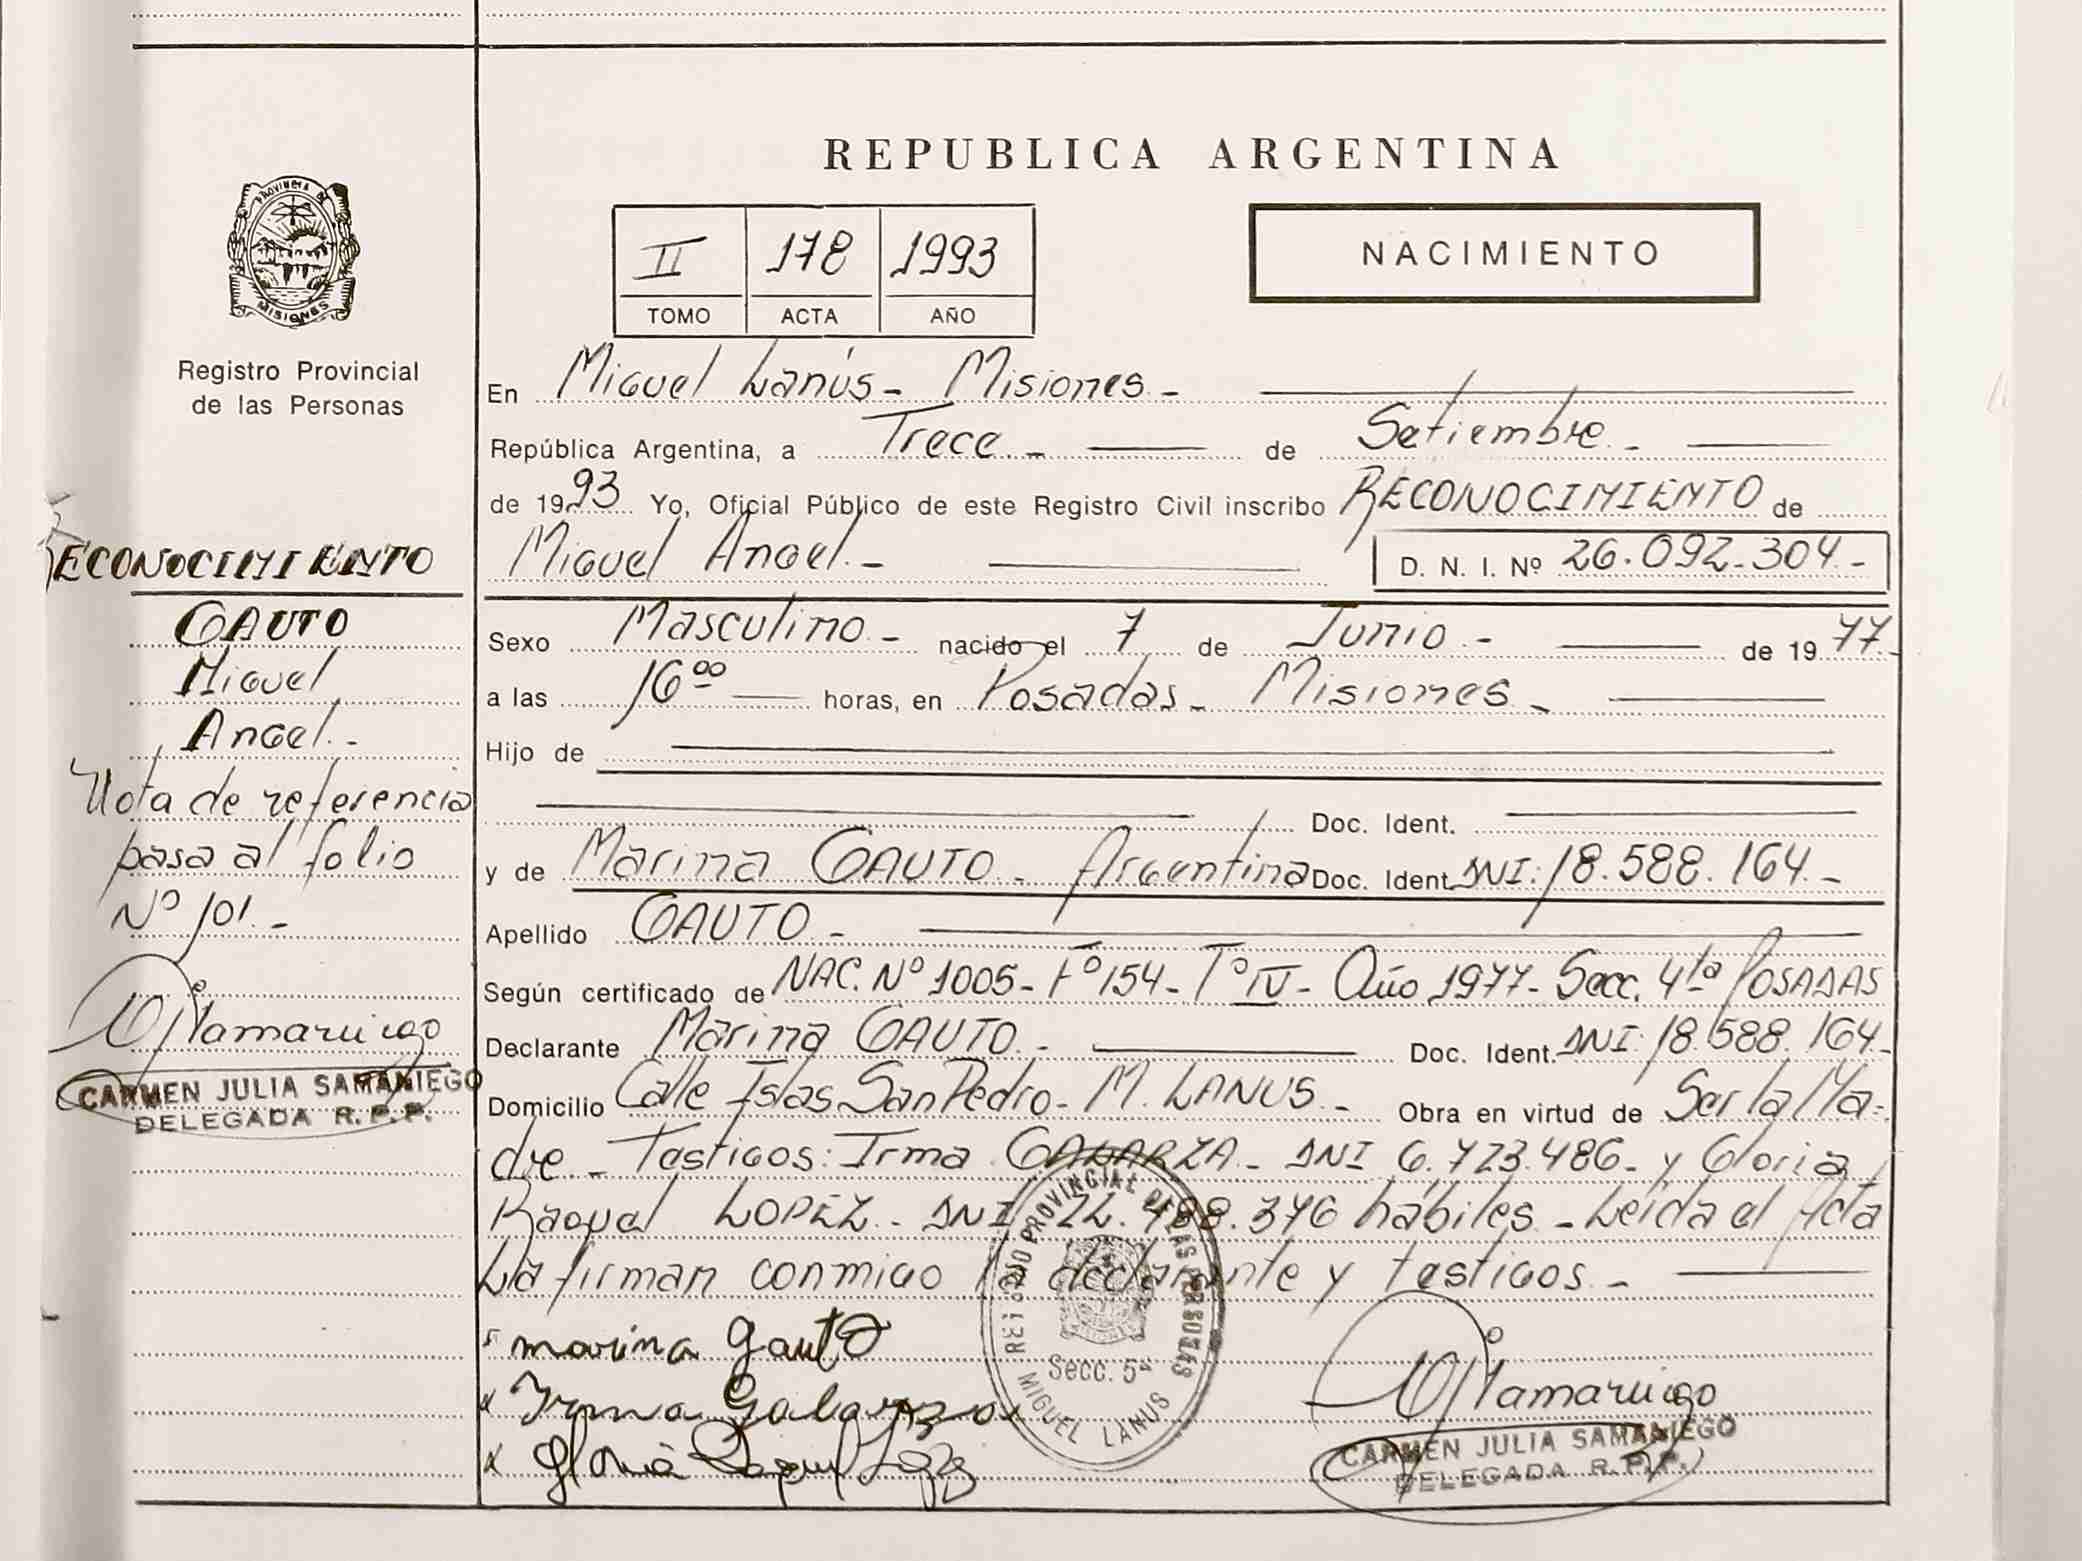 REPUBLICA ARGENTINA
PROVINCIA DE
MISIONES
Registro Provincial
de las Personas
II 178 1993
TOMO ACTA AÑO
NACIMIENTO
En Miguel Lanús - Misiones -
República Argentina, a Trece - de Setiembre -
de 1993 Yo, Oficial Público de este Registro Civil inscribo RECONOCIMIENTO de
Miguel Angel - D. N. I. Nº 26.092.304.-
Sexo Masculino - nacido el 7 de Junio - de 1977.-
a las 16 00 horas, en Posadas - Misiones -
Hijo de
Doc. Ident.
y de Marina GAUTO - Argentina Doc. Ident. DNI: 18.588.164.-
Apellido GAUTO -
Según certificado de NAC. Nº 1005 - Fº 154 - Tº IV - Año 1977 - Secc. 4ta POSADAS
Declarante Marina GAUTO - Doc. Ident. DNI: 18.588.164.-
Domicilio Calle Islas San Pedro - M. LANUS - Obra en virtud de Ser la Ma=
dre - Testigos: Irma GALARZA - DNI 6.723.486 - y Gloria
Raquel LOPEZ - DNI 22.488.376 hábiles - Leída el Acta
La firman conmigo la declarante y testigos -
marina gauto
Irma Galarza
Gloria Raquel Lopez
REGISTRO PROVINCIAL DE LAS PERSONAS
Secc. 5ª
MIGUEL LANUS
CARMEN JULIA SAMANIEGO
DELEGADA R.P.P.
RECONOCIMIENTO
GAUTO
Miguel
Angel -
Nota de referencia
pasa al folio
Nº 101 -
CARMEN JULIA SAMANIEGO
DELEGADA R.P.P.